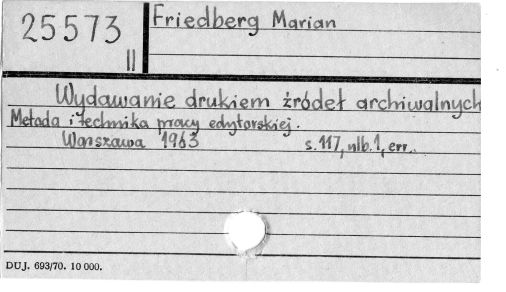 25573
II
Friedberg Marian
Wydawanie drukiem źródeł archiwalnych
Metoda i technika pracy edytorskiej.
Warszawa 1963 s.117, nlb.1, err.
DUJ. 693/70. 10 000.